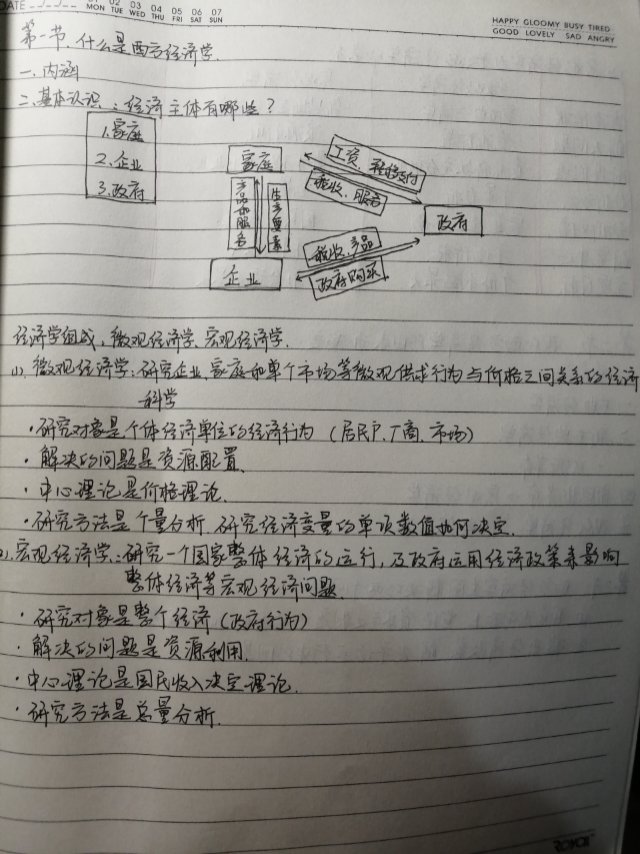 DATE
01 02 03 04 05 06 07
MON TUE WED THU FRI SAT SUN
HAPPY GLOOMY BUSY TIRED
GOOD LOVELY SAD ANGRY
第一节、什么是西方经济学.
一、内涵
二、基本认识：经济主体有哪些？
1.家庭
2.企业
3.政府
家庭
工资 转移支付
税收、服务
产品和服务
生产要素
政府
企业
税收、产品
政府购买
经济学组成，微观经济学、宏观经济学.
(1). 微观经济学：研究企业、家庭和单个市场等微观供求行为与价格之间关系的经济
科学
·研究对象是个体经济单位的经济行为（居民户、厂商、市场）
·解决的问题是资源配置.
·中心理论是价格理论.
·研究方法是个量分析. 研究经济变量的单项数值如何决定.
2). 宏观经济学：研究一个国家整体经济的运行，及政府运用经济政策来影响
整体经济等宏观经济问题.
·研究对象是整个经济（政府行为）
·解决的问题是资源利用.
·中心理论是国民收入决定理论.
·研究方法是总量分析.